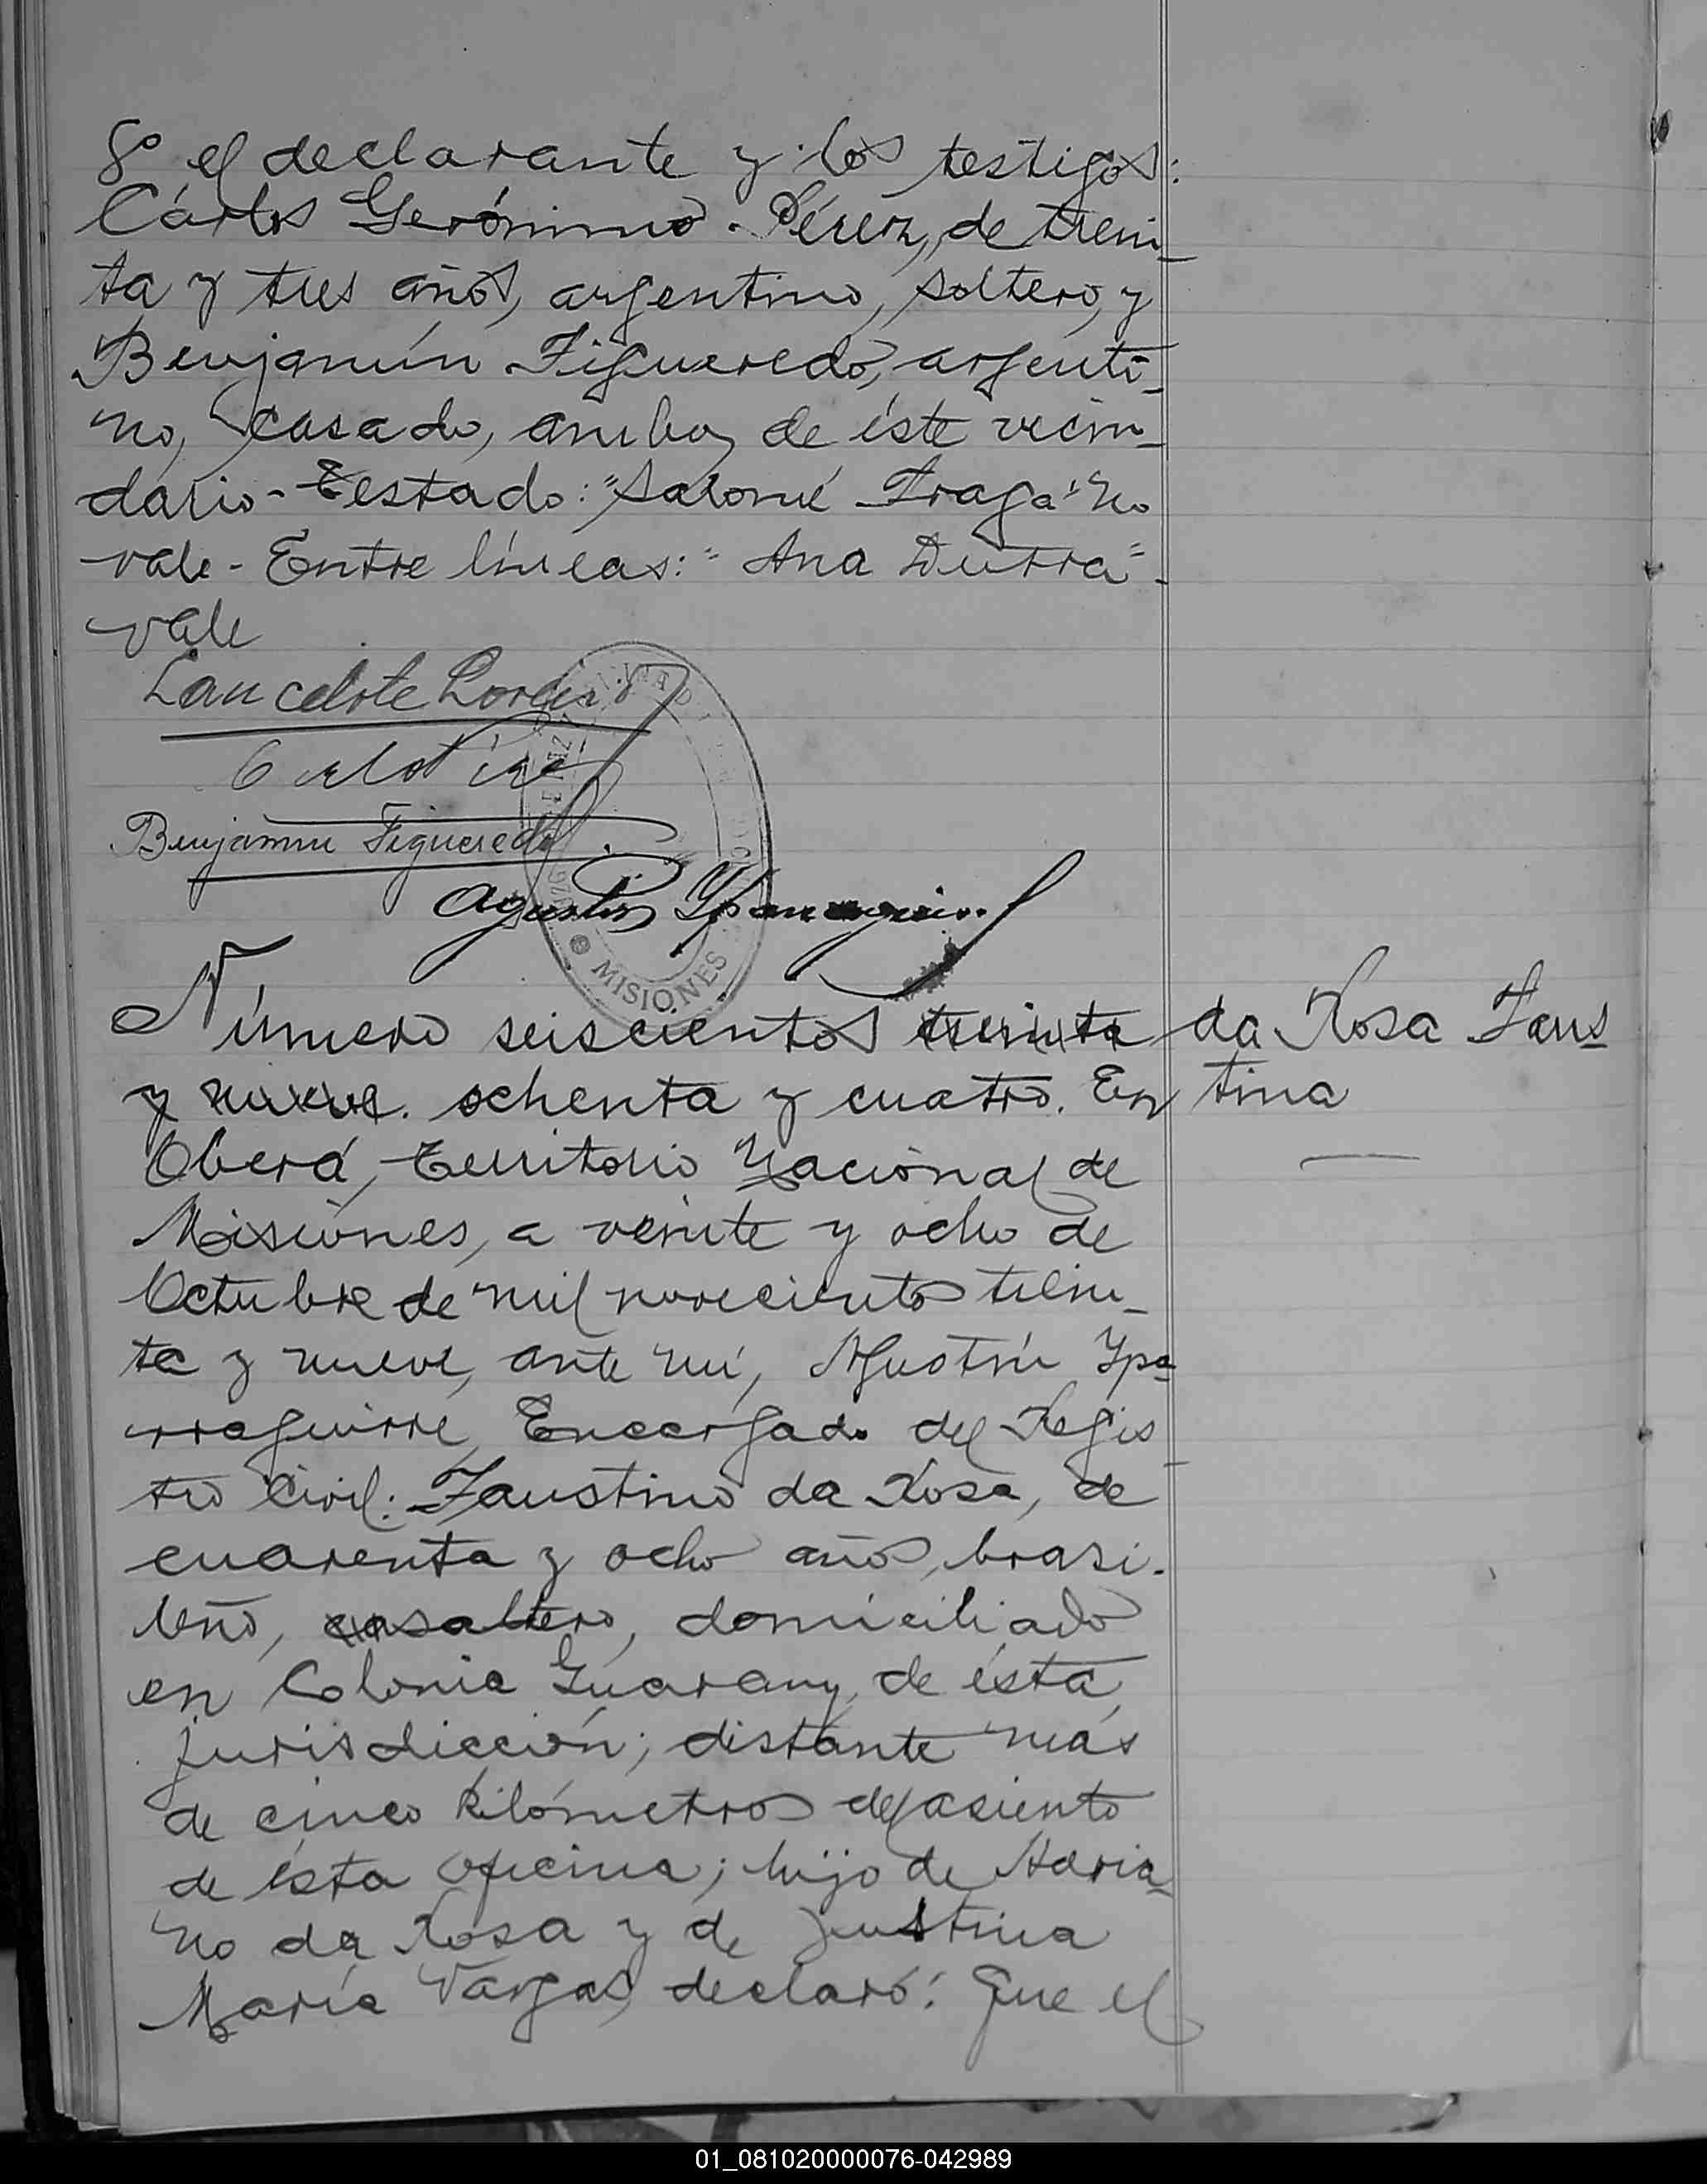 8° el declarante y los testigos:
Cárlos Gerónimo Pérez, de trein_
ta y tres años, argentino, soltero, y
Benjamín Figueredo, argenti_
no, casado, ambos de éste vecin_
dario - Testado: "Salomé Fraga" no
vale - Entre líneas: "Ana Dutra" -
vale
Lancelote
Benjamin Figueredo
Agustin Yparraguirre
MISIONES
Número seiscientos treinta
y nueve. ochenta y cuatro. En
Oberá, Territorio Nacional de
Misiones, a veinte y ocho de
Octubre de mil novecientos trein_
ta y nueve, ante mí, Agustín Ypa_
rraguirre, Encargado del Regis_
tro Civil: Faustino da Rosa, de
cuarenta y ocho años, brasi_
leño, soltero, domiciliado
en Colonia Guarany, de ésta
jurisdicción; distante más
de cinco kilómetros del asiento
de ésta oficina; hijo de Adria_
no da Rosa y de Justina
María Vargas, declaró: Que el
da Rosa Faus_
tina
01_081020000076-042989